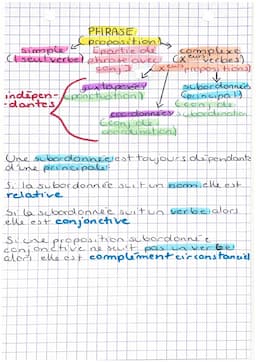 PHRASE
(proposition)
simple (partie de complexe
(1 seul verbe) phrase avec (x verbes)
propositions)
juxtaposées subordonnée
indépen- (ponctuation) (principal)
dantes (conj de
coordonnées subordination)
(conj de
coordination)
Une subordonnée est toujours dépendante
d'une principale.
Si la subordonnée suit un nom elle est
relative
Si la subordonnée suit un verbe alors
elle est conjonctive
Si une proposition subordonnée
conjonctive ne suit pas un verbe
alors elle est complément circonstanciel